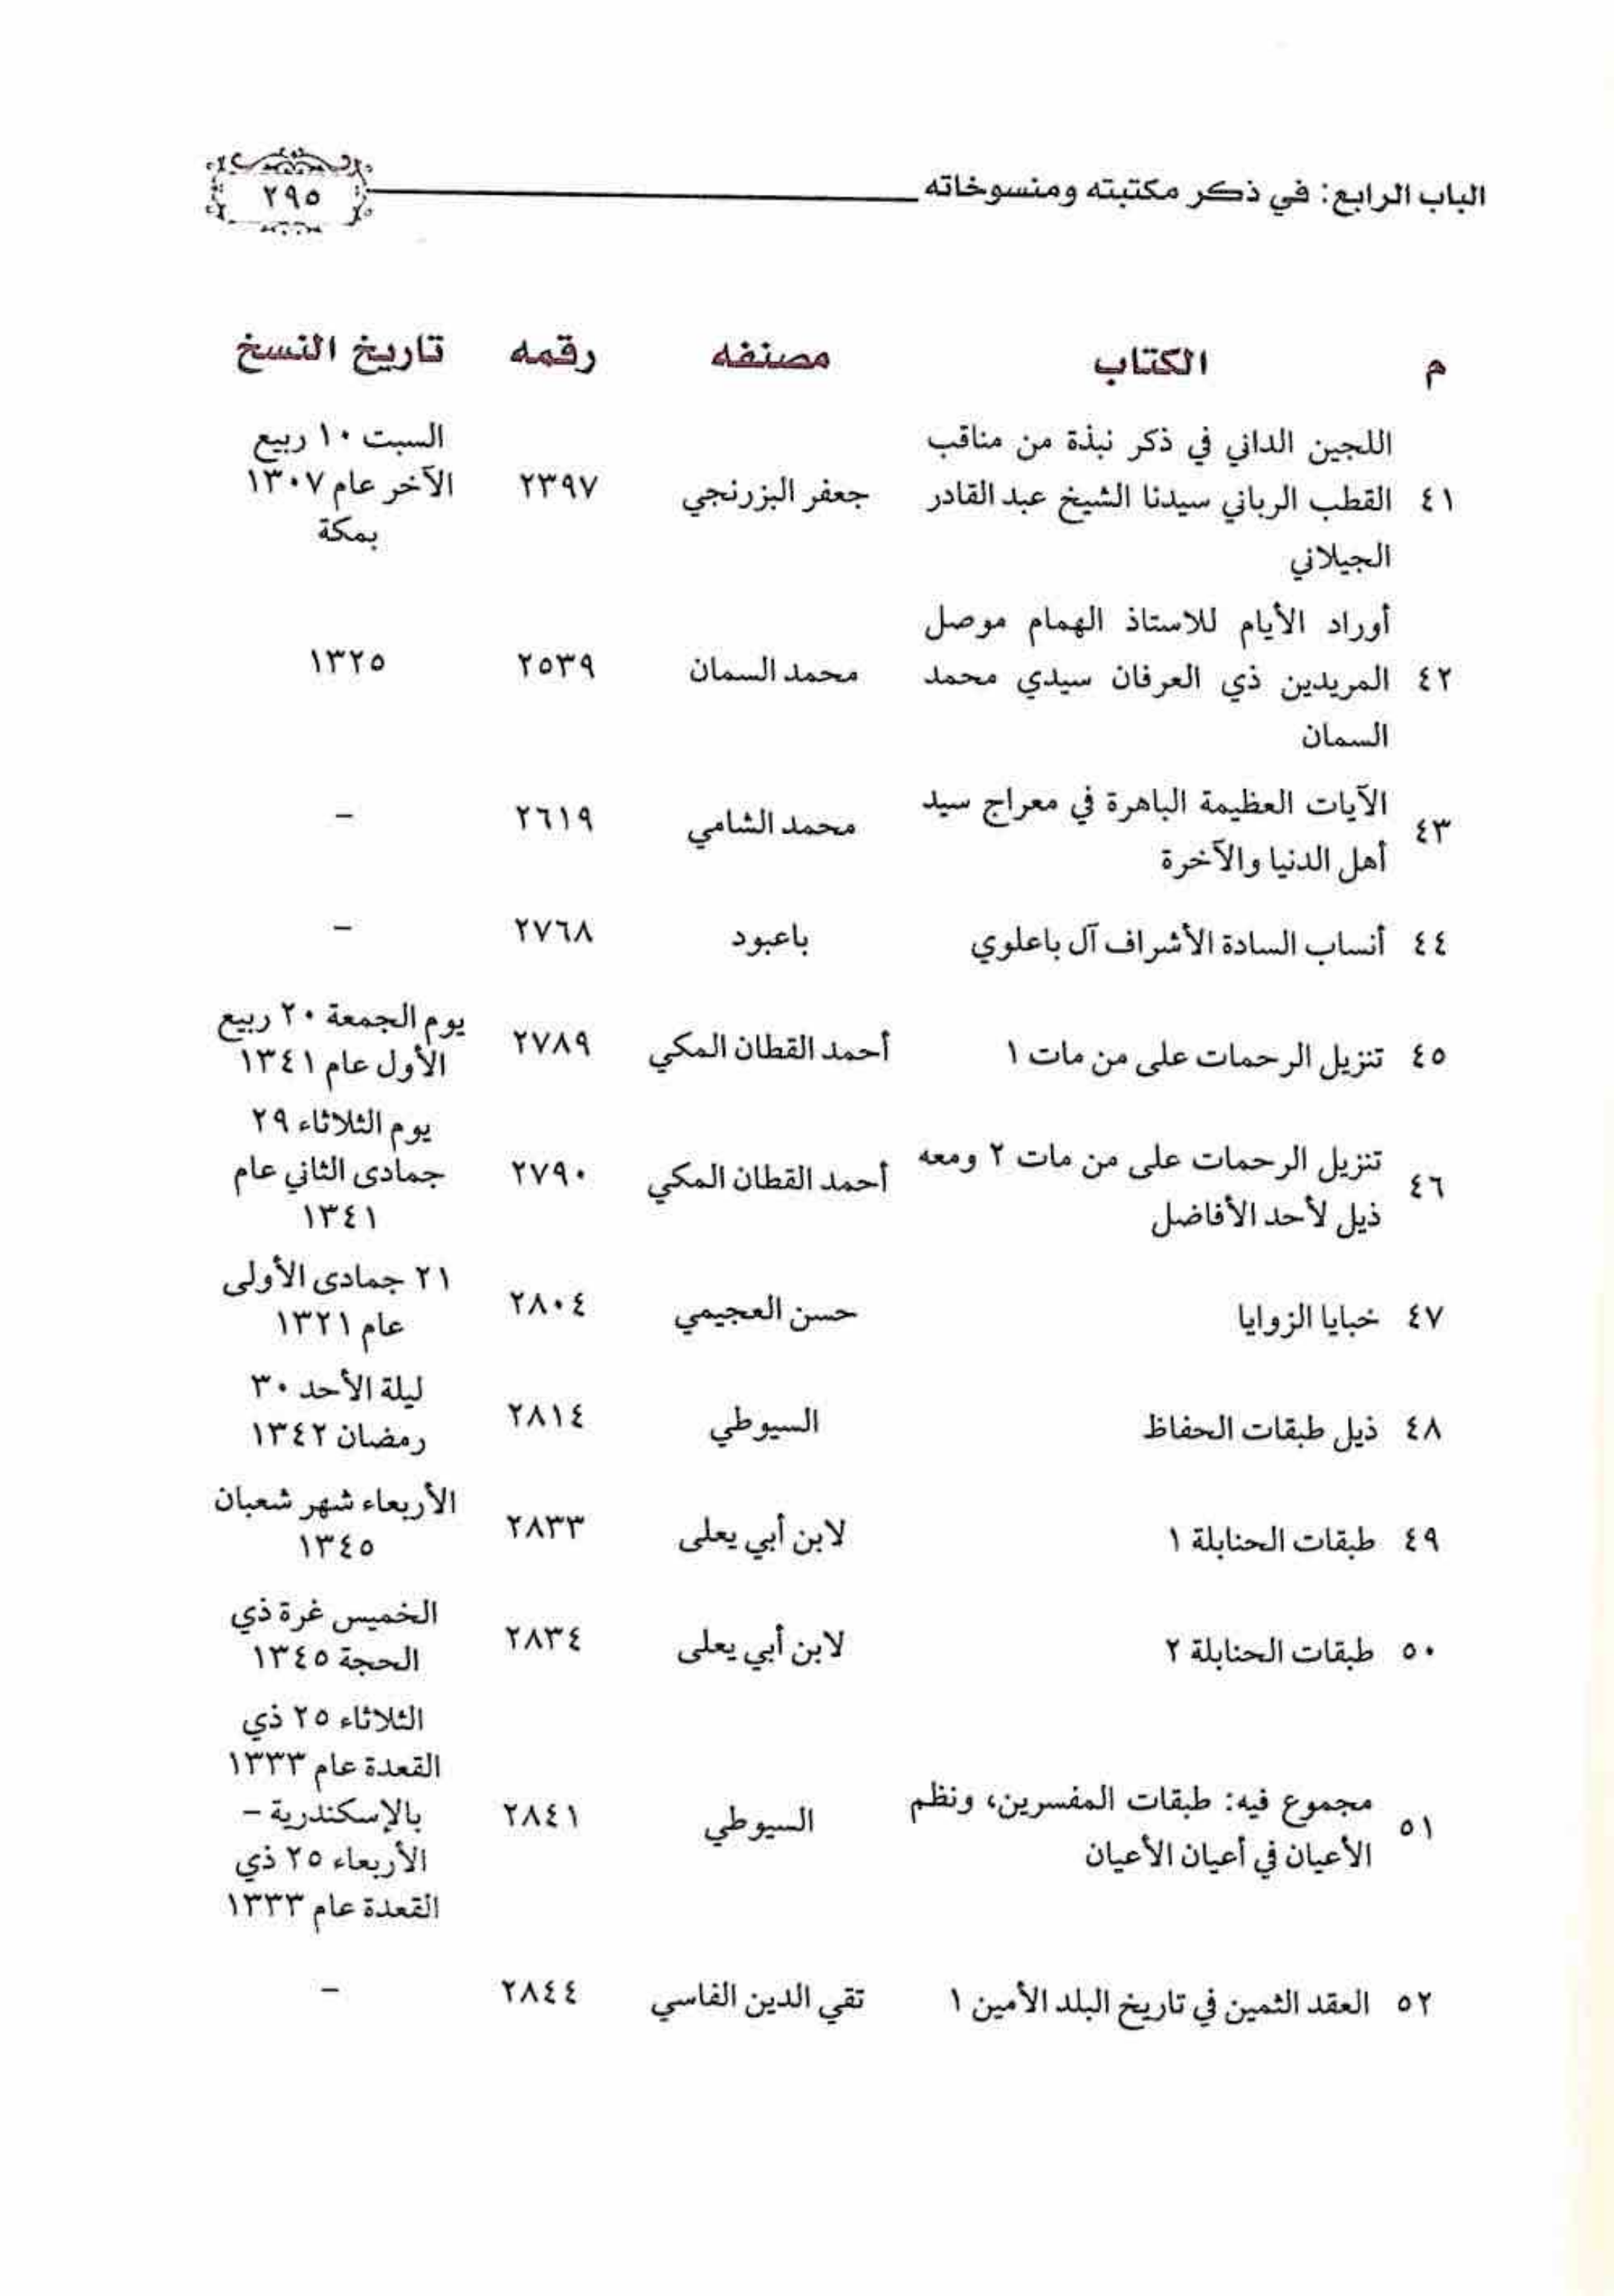 الباب الرابع: في ذكر مكتبته ومنسوخاته
٢٩٥
م الكتاب مصنفه رقمه تاريخ النسخ
٤١
اللجين الداني في ذكر نبذة من مناقب
القطب الرباني سيدنا الشيخ عبد القادر
الجيلاني
جعفر البزرنجي
٢٣٩٧
السبت ١٠ ربيع
الآخر عام ١٣٠٧
بمكة
٤٢
أوراد الأيام للاستاذ الهمام موصل
المريدين ذي العرفان سيدي محمد
السمان
محمد السمان
٢٥٣٩
١٣٢٥
٤٣
الآيات العظيمة الباهرة في معراج سيد
أهل الدنيا والآخرة
محمد الشامي
٢٦١٩
–
٤٤
أنساب السادة الأشراف آل باعلوي
باعبود
٢٧٦٨
–
٤٥
تنزيل الرحمات على من مات ١
أحمد القطان المكي
٢٧٨٩
يوم الجمعة ٢٠ ربيع
الأول عام ١٣٤١
٤٦
تنزيل الرحمات على من مات ٢ ومعه
ذيل لأحد الأفاضل
أحمد القطان المكي
٢٧٩٠
يوم الثلاثاء ٢٩
جمادى الثاني عام
١٣٤١
٤٧
خبايا الزوايا
حسن العجيمي
٢٨٠٤
٢١ جمادى الأولى
عام ١٣٢١
٤٨
ذيل طبقات الحفاظ
السيوطي
٢٨١٤
ليلة الأحد ٣٠
رمضان ١٣٤٢
٤٩
طبقات الحنابلة ١
لابن أبي يعلى
٢٨٣٣
الأربعاء شهر شعبان
١٣٤٥
٥٠
طبقات الحنابلة ٢
لابن أبي يعلى
٢٨٣٤
الخميس غرة ذي
الحجة ١٣٤٥
٥١
مجموع فيه: طبقات المفسرين، ونظم
الأعيان في أعيان الأعيان
السيوطي
٢٨٤١
الثلاثاء ٢٥ ذي
القعدة عام ١٣٣٣
بالإسكندرية –
الأربعاء ٢٥ ذي
القعدة عام ١٣٣٣
٥٢
العقد الثمين في تاريخ البلد الأمين ١
تقي الدين الفاسي
٢٨٤٤
–